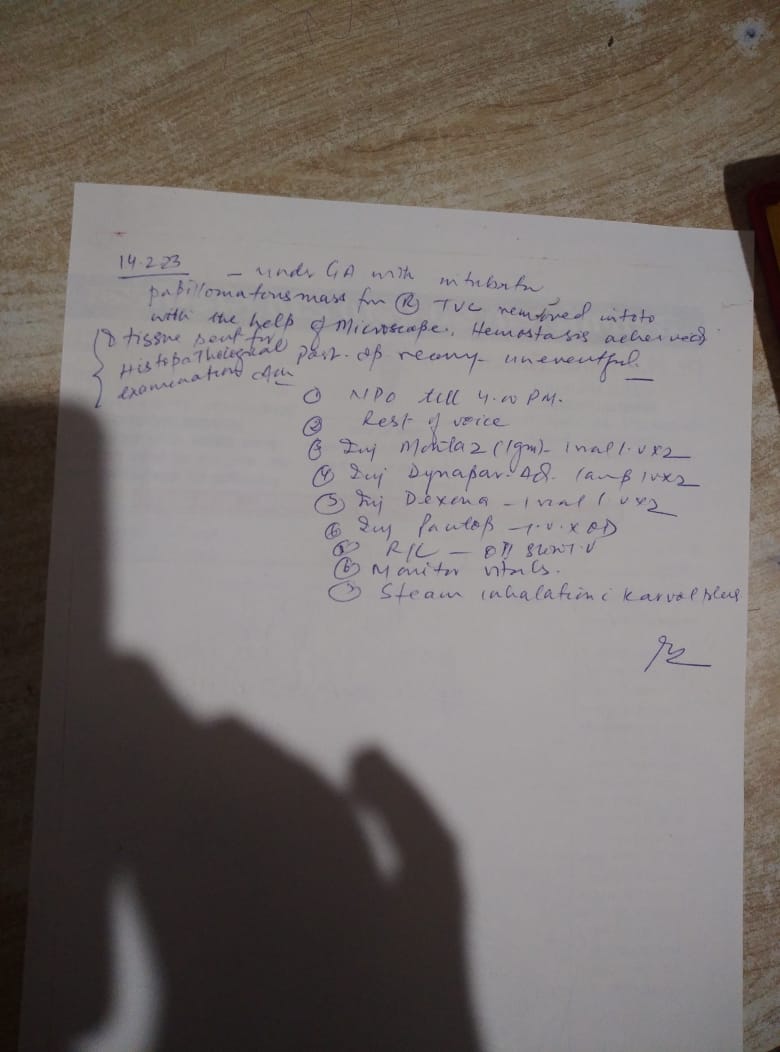 14.2.23 - under GA with intubatn
papillomatous mass frm (R) TVC removed intoto
with the help of Microscope. Hemostasis acheived
Post. op recovry uneventful.
tissue sent for
Histopathological
examination
① NPO till 4.00 PM.
② Rest of voice
③ Inj Montaz (1gm) - 1 vial I.V x 2
④ Inj Dynapar AQ. 1 amp IV x 2
⑤ Inj Dexona - 1 vial I V x 2
⑥ Inj Pantop - I.V. x OD
R/L -
⑥ Monitor vitals.
⑦ Steam inhalation c Karvol plus